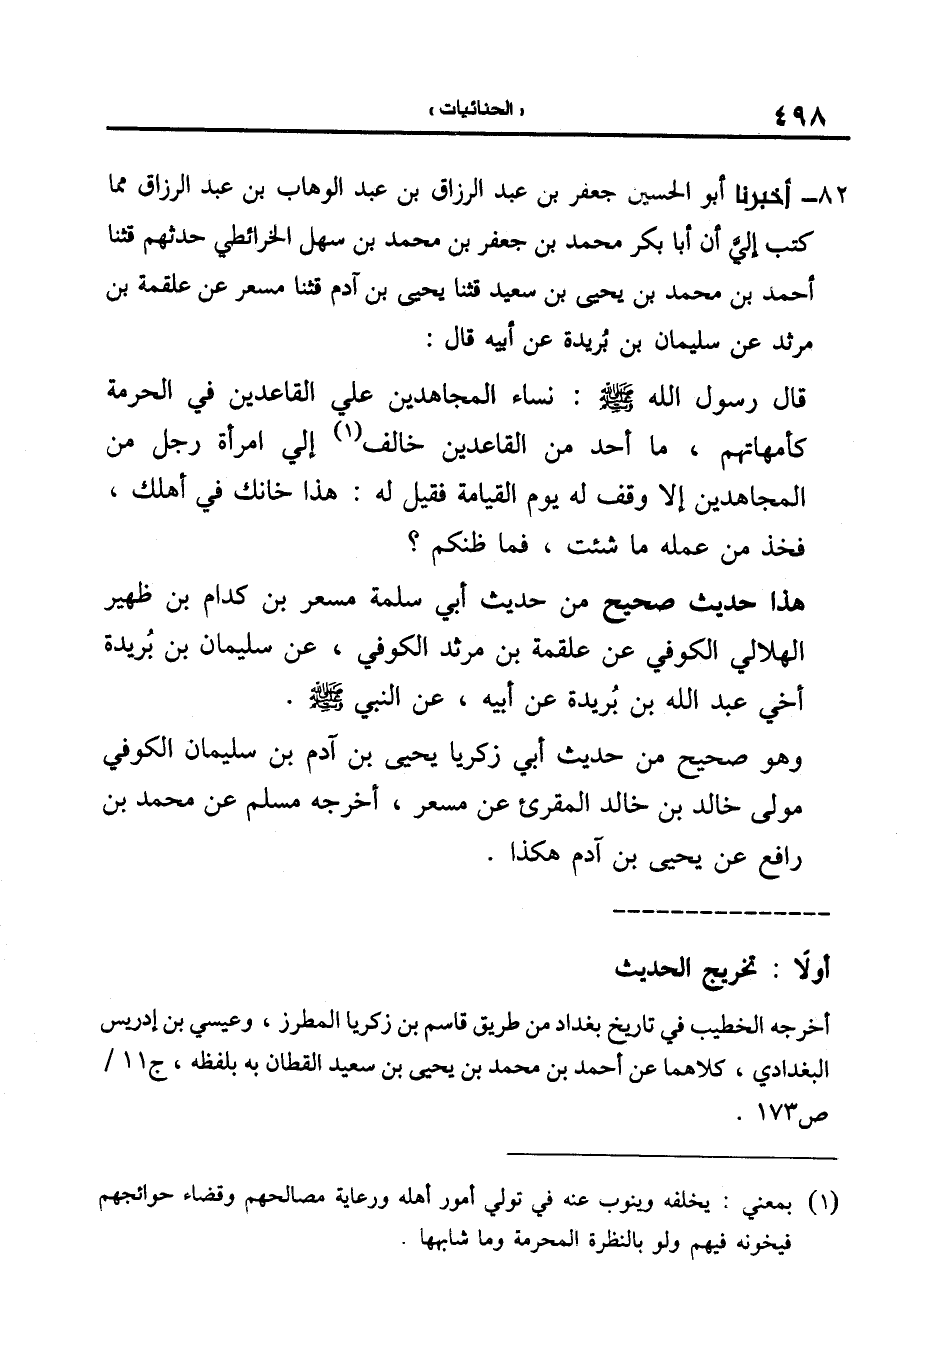 ٤٩٨
« الحنائيات »
٨٢- أخبرنا أبو الحسين جعفر بن عبد الرزاق بن عبد الوهاب بن عبد الرزاق مما
كتب إليَّ أن أبا بكر محمد بن جعفر بن محمد بن سهل الخرائطي حدثهم قثنا
أحمد بن محمد بن يحيى بن سعيد قثنا يحيى بن آدم قثنا مسعر عن علقمة بن
مرثد عن سليمان بن بُريدة عن أبيه قال :
قال رسول الله ﷺ : نساء المجاهدين علي القاعدين في الحرمة
كأمهاتهم ، ما أحد من القاعدين خالف(١) إلي امرأة رجل من
المجاهدين إلا وقف له يوم القيامة فقيل له : هذا خانك في أهلك ،
فخذ من عمله ما شئت ، فما ظنكم ؟
هذا حديث صحيح من حديث أبي سلمة مسعر بن كدام بن ظهير
الهلالي الكوفي عن علقمة بن مرثد الكوفي ، عن سليمان بن بُريدة
أخي عبد الله بن بُريدة عن أبيه ، عن النبي ﷺ .
وهو صحيح من حديث أبي زكريا يحيى بن آدم بن سليمان الكوفي
مولى خالد بن خالد المقرئ عن مسعر ، أخرجه مسلم عن محمد بن
رافع عن يحيى بن آدم هكذا .
أولًا : تخريج الحديث
أخرجه الخطيب في تاريخ بغداد من طريق قاسم بن زكريا المطرز ، وعيسي بن إدريس
البغدادي ، كلاهما عن أحمد بن محمد بن يحيى بن سعيد القطان به بلفظه ، ج١١ /
ص١٧٣ .
(١) بمعني : يخلفه وينوب عنه في تولي أمور أهله ورعاية مصالحهم وقضاء حوائجهم
فيخونه فيهم ولو بالنظرة المحرمة وما شابهها .